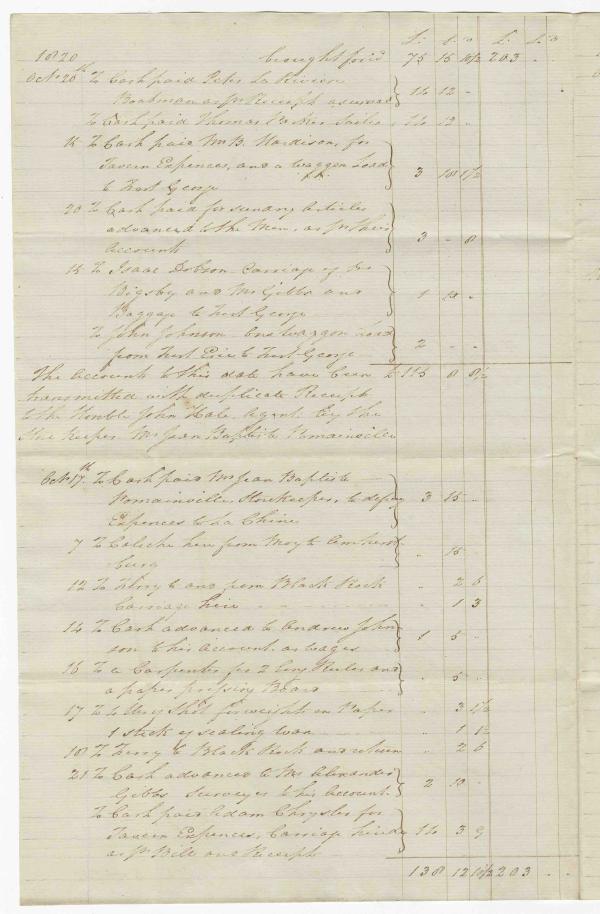 £ s D £ s D
1820 brought ford 75 15 10½ 203 " "
Octr 20th To Cash paid Peter La Riviere
Boatman as pr Receipt as usual } 14 12 "
To Cash paid Thomas 14 12 "
15 To Cash paid Mr B. Hardison, for
Tavern Expences, and a waggon load
to Fort George } 3 18 1½
20 To Cash paid for sundry Articles
advanced to the Men, as pr their
Accounts } 3 " 8
15 To Isaac Dobson Carriage of Dr
Bigsby and Mr Gibbs and
Baggage to Fort George } 1 10 "
To John Johnson One waggon load
from Fort Erie to Fort George } 2 " "
The Accounts to this date have been £ 115 8 8½
transmitted with duplicate Receipts
to the Honble John Hale Agent by the
Store Keeper Mr Jean Baptiste Romainville
Octr 17th To Cash paid Mr Jean Baptiste
Romainville, Storekeeper, to defray
Expences to La Chine } 3 15 "
7 To Caleche hire from Moy to Amherst
burg " 15 "
12 To Ferry to and from Black Rock " 2 6
Carriage hire " 1 3
14 To Cash advanced to Andrew John-
son to his account as wages } 1 5 "
16 To a Carpenter for 2 long Rulers and
a paper pressing Board } " 5 "
17 To Shot for weights on Paper " 3 1½
1 stick of sealing wax " 1 1½
18 To Ferry to Black Rock and return " 2 6
21 To Cash advanced to Mr Alexander
Gibbs Surveyor to his Account } 2 10 "
To Cash paid Adam Chrysler for
Tavern Expences, Carriage hire
as pr Bill and Receipt } 14 3 9
138 12 10½ 203 " "